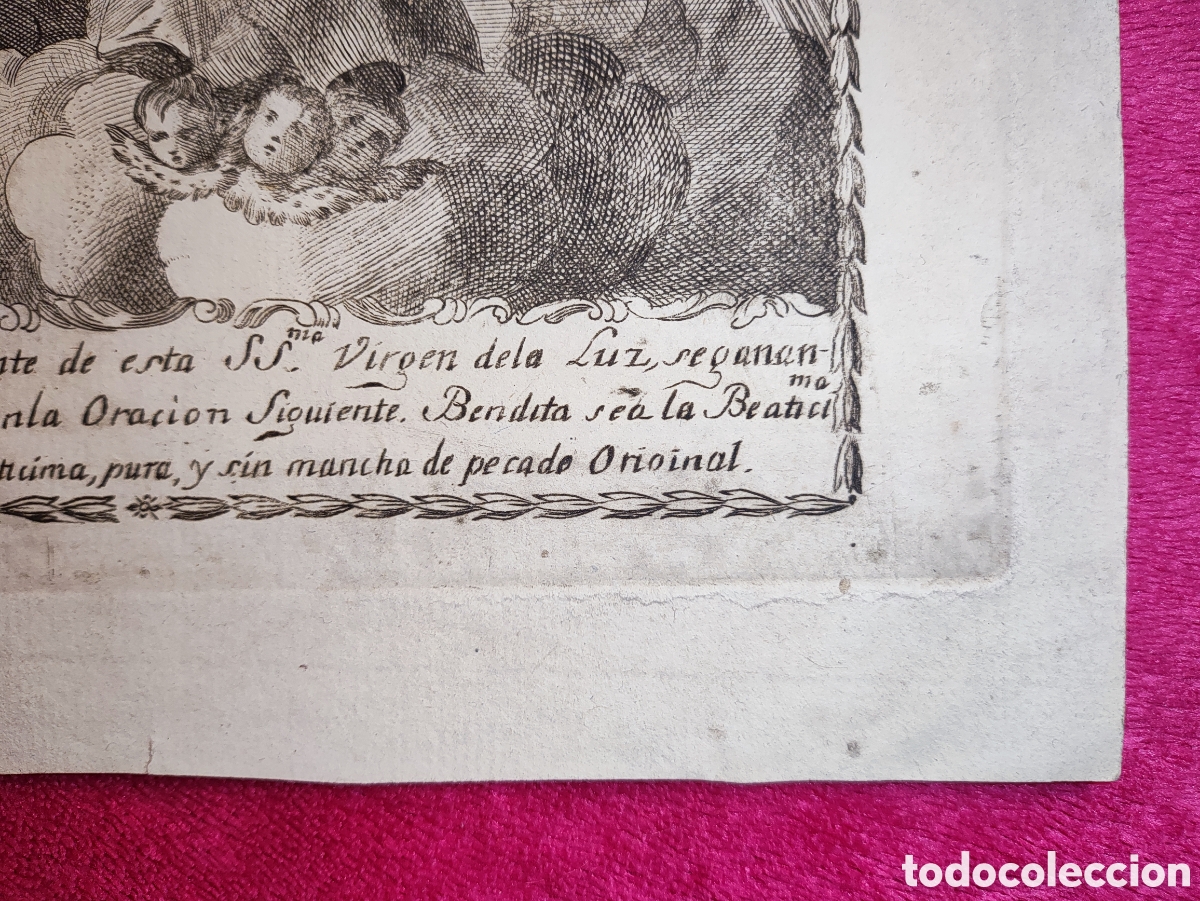 nte de esta SS.ma Virgen dela Luz, seganan-
nla Oracion Siguiente. Bendita sea la Beatici ma
ticima, pura, y sin mancha de pecado Original.
todocoleccion